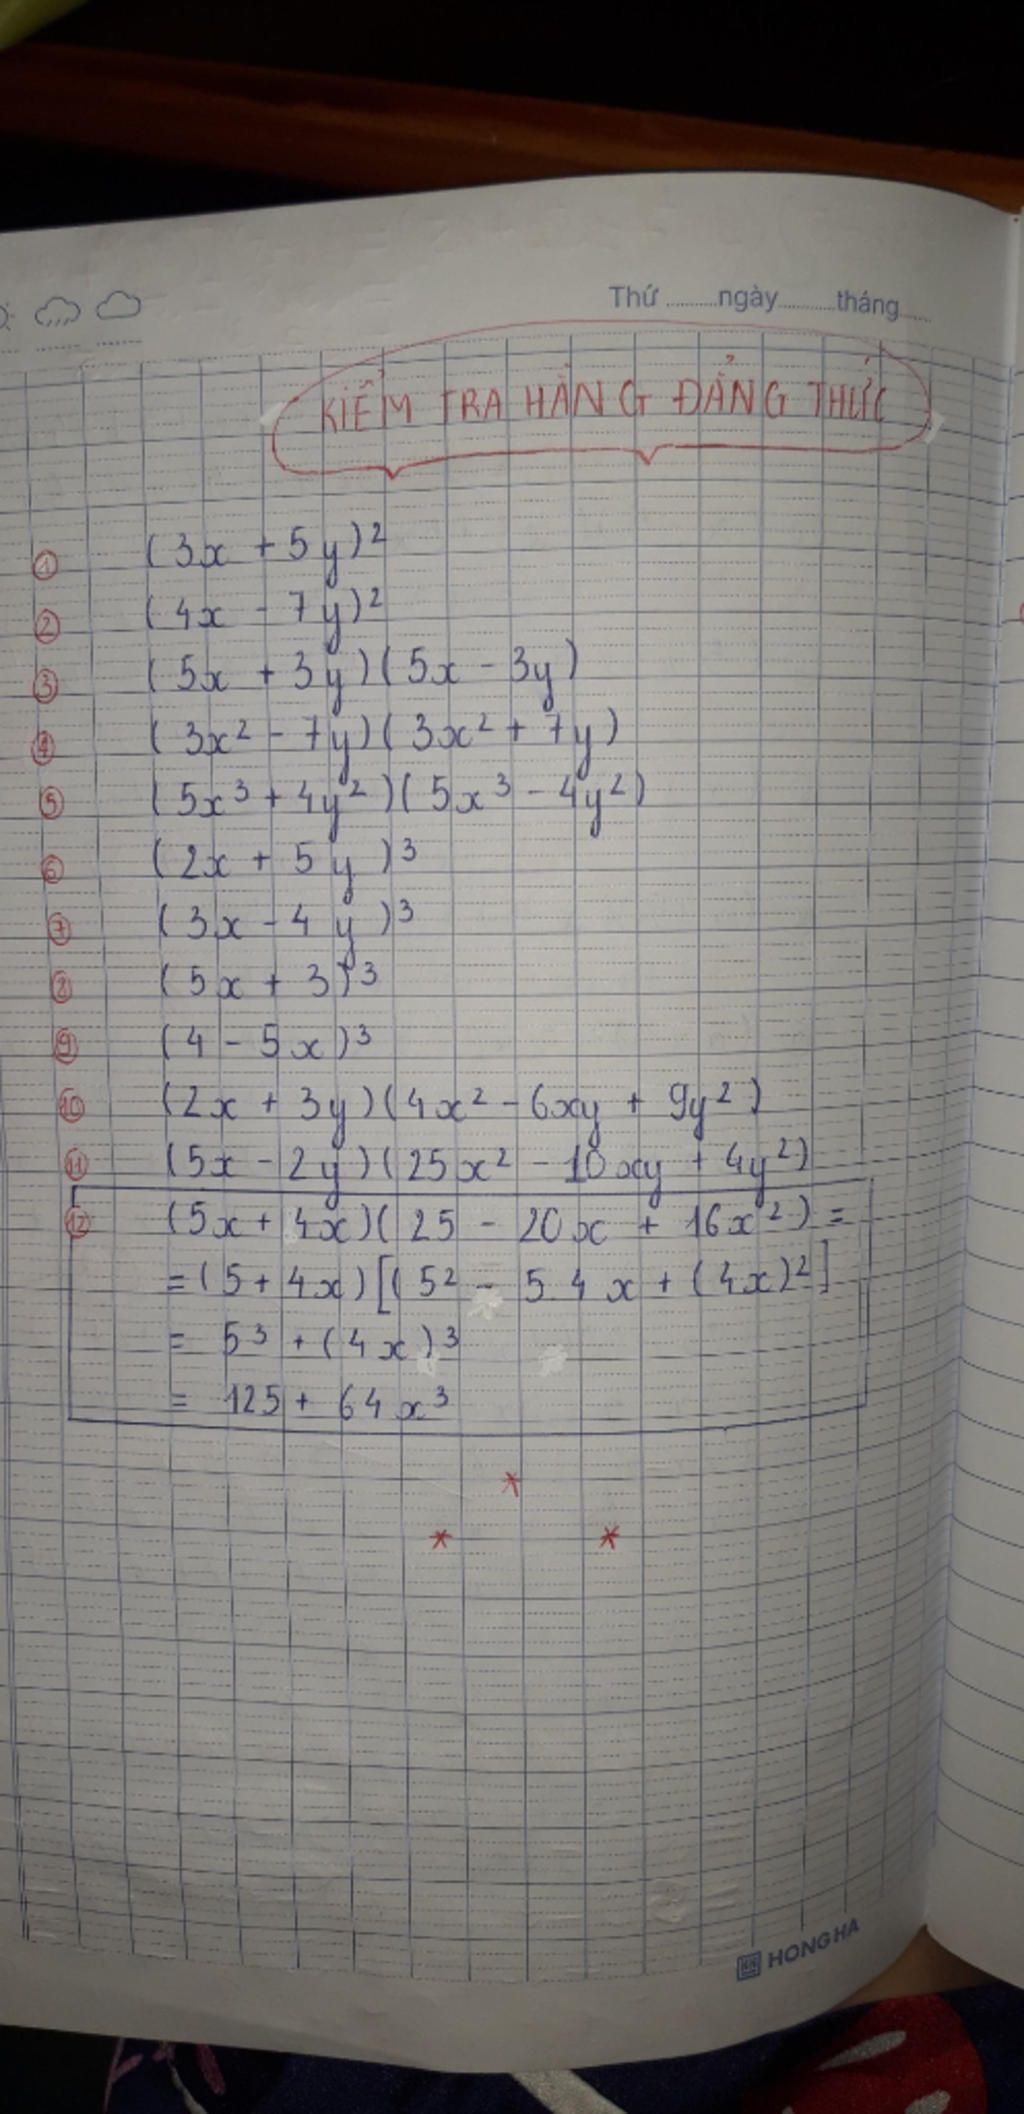 Thứ ........ngày........tháng......
KIỂM TRA HẰNG ĐẲNG THỨC
① (3x + 5y)²
② (4x - 7y)²
③ (5x + 3y)(5x - 3y)
④ (3x² - 7y)(3x² + 7y)
⑤ (5x³ + 4y²)(5x³ - 4y²)
⑥ (2x + 5y)³
⑦ (3x - 4y)³
⑧ (5x + 3)³
⑨ (4 - 5x)³
⑩ (2x + 3y)(4x² - 6xy + 9y²)
⑪ (5x - 2y)(25x² - 10xy + 4y²)
⑫ (5x + 4x)(25 - 20x + 16x²) =
= (5 + 4x)[(5² - 5.4x + (4x)²]
= 5³ + (4x)³
= 125 + 64x³
HH HONG HA